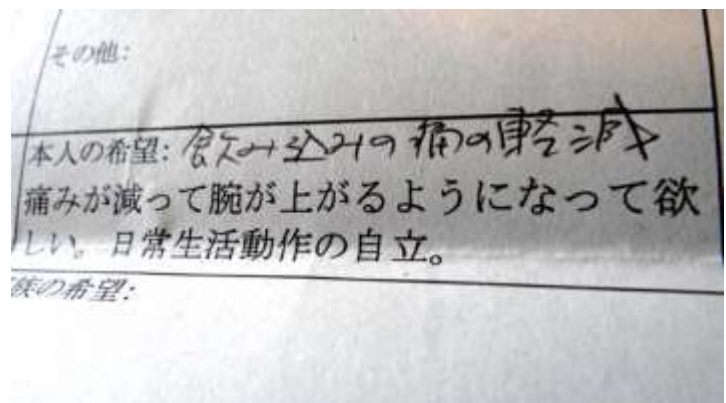 その他:
本人の希望: 飲み込みの痛の軽減
痛みが減って腕が上がるようになって欲
しい。日常生活動作の自立。
族の希望: